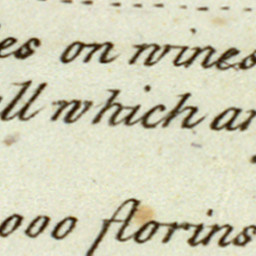 es on wines
ll which ar
000 florins